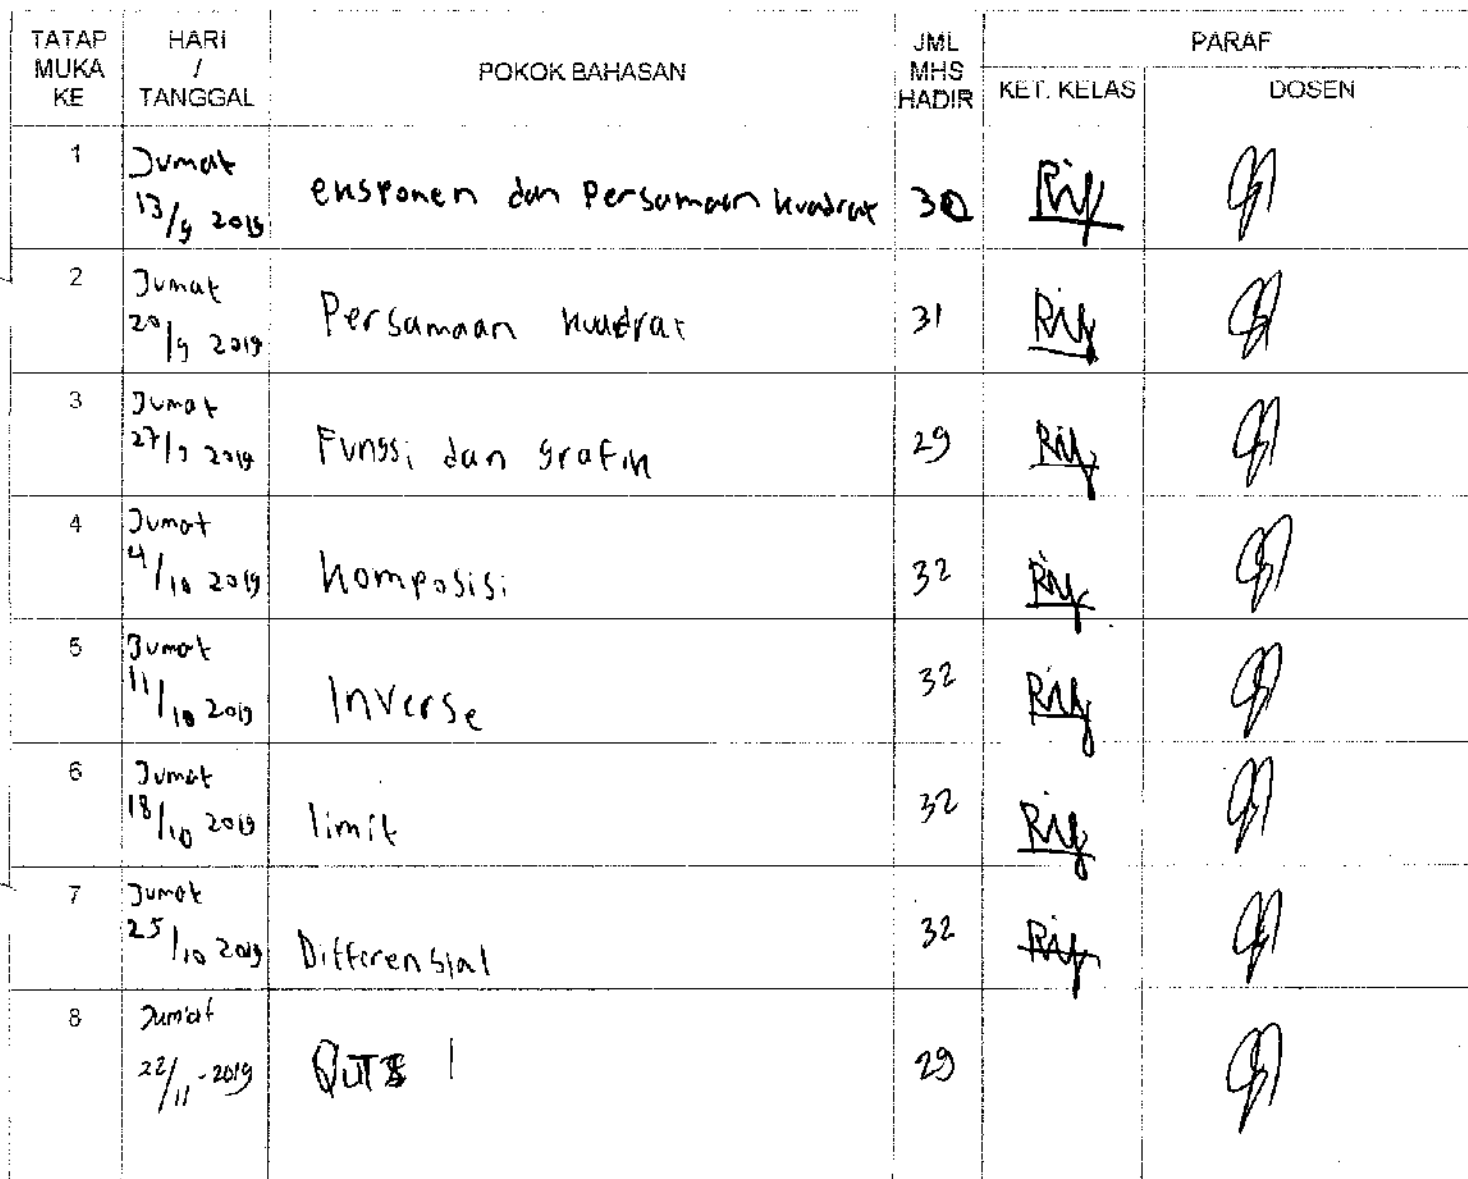 TATAP MUKA KE | HARI / TANGGAL | POKOK BAHASAN | JML MHS HADIR | PARAF
KET. KELAS | DOSEN
1 | Jumat 13/9 2019 | eksponen dan Persamaan kuadrat | 30
2 | Jumat 20/9 2019 | Persamaan kuadrat | 31
3 | Jumat 27/9 2019 | Fungsi dan grafik | 29
4 | Jumat 4/10 2019 | Komposisi | 32
5 | Jumat 11/10 2019 | Inverse | 32
6 | Jumat 18/10 2019 | limit | 32
7 | Jumat 25/10 2019 | Differensial | 32
8 | Jum'at 22/11-2019 | 29